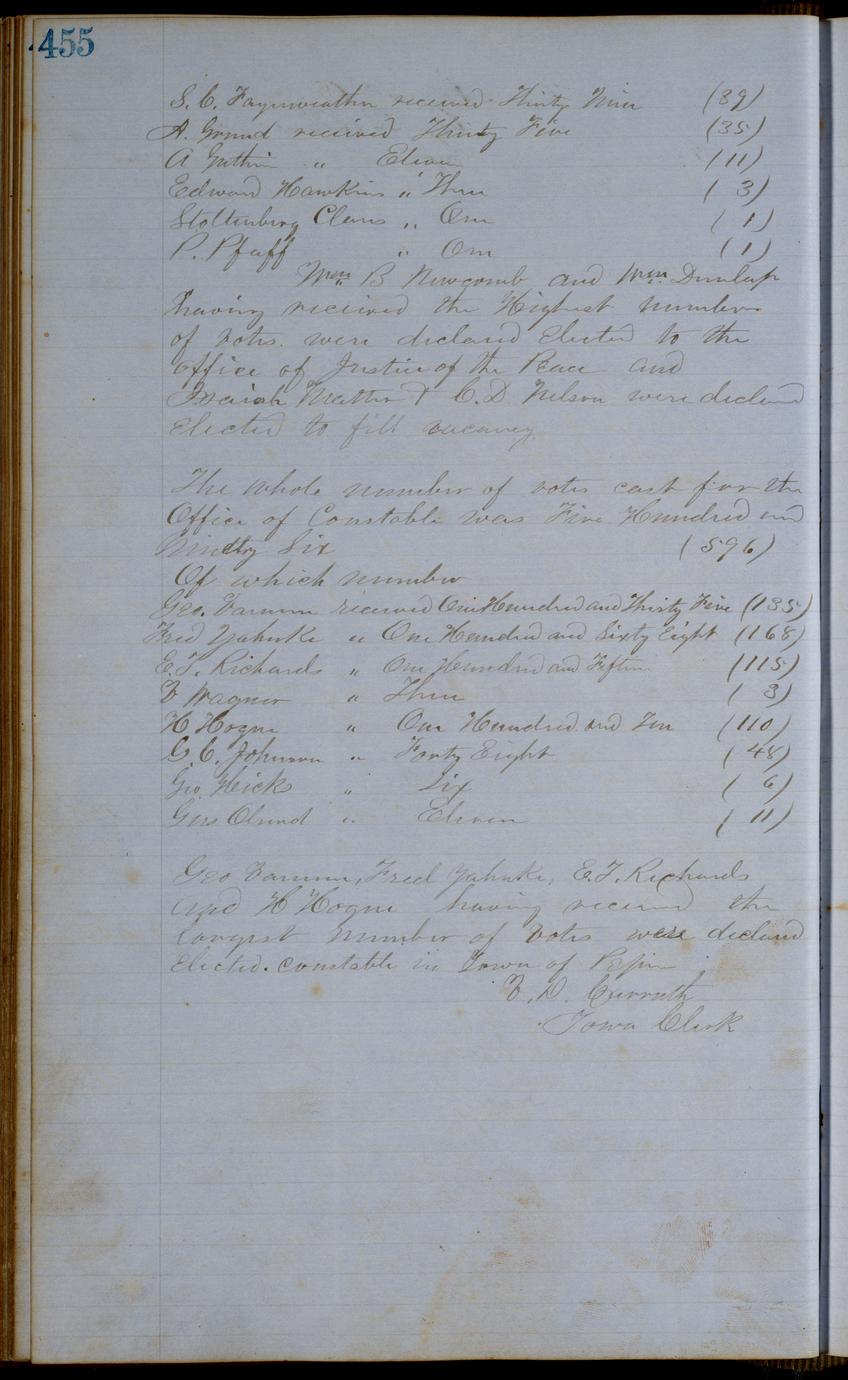 455
S. C. Fayerweather received Thirty Nine (39)
A. Grund received Thirty Five (35)
A Guthrie " Eleven (11)
Edward Hawkins " Three (3)
Stoltenberg Claus " One (1)
P. Pfaff " One (1)
Wm B Newcomb and Wm Dunlap
having received the Highest number
of votes. were declared Elected to the
office of Justice of the Peace and
Isaiah Mather & C. D. Nelson were declared
Elected to fill vacancy
The whole number of votes cast for the
Office of Constable was Five Hundred and
Ninety Six (596)
Of which number
Geo. Varnum received One Hundred and Thirty Five (135)
Fred Yahnke " One Hundred and Sixty Eight (168)
E. T. Richards " One Hundred and Fifteen (115)
F Wagner " Three (3)
H Hogue " One Hundred and Ten (110)
G. C. Johnson " Forty Eight (48)
Geo. Hicks " Six (6)
Gus " Eleven (11)
Geo Varnum, Fred Yahnke, E. T. Richards
and H Hogue having received the
largest number of votes were declared
Elected. constable in Town of
F. D. Carruth
Town Clerk